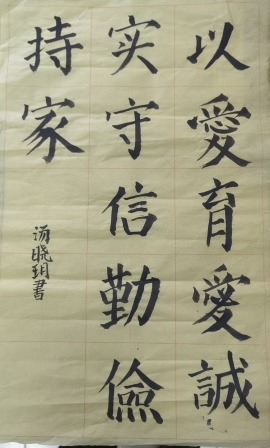 以愛育愛誠
实守信勤儉
持家
汤晓玥書